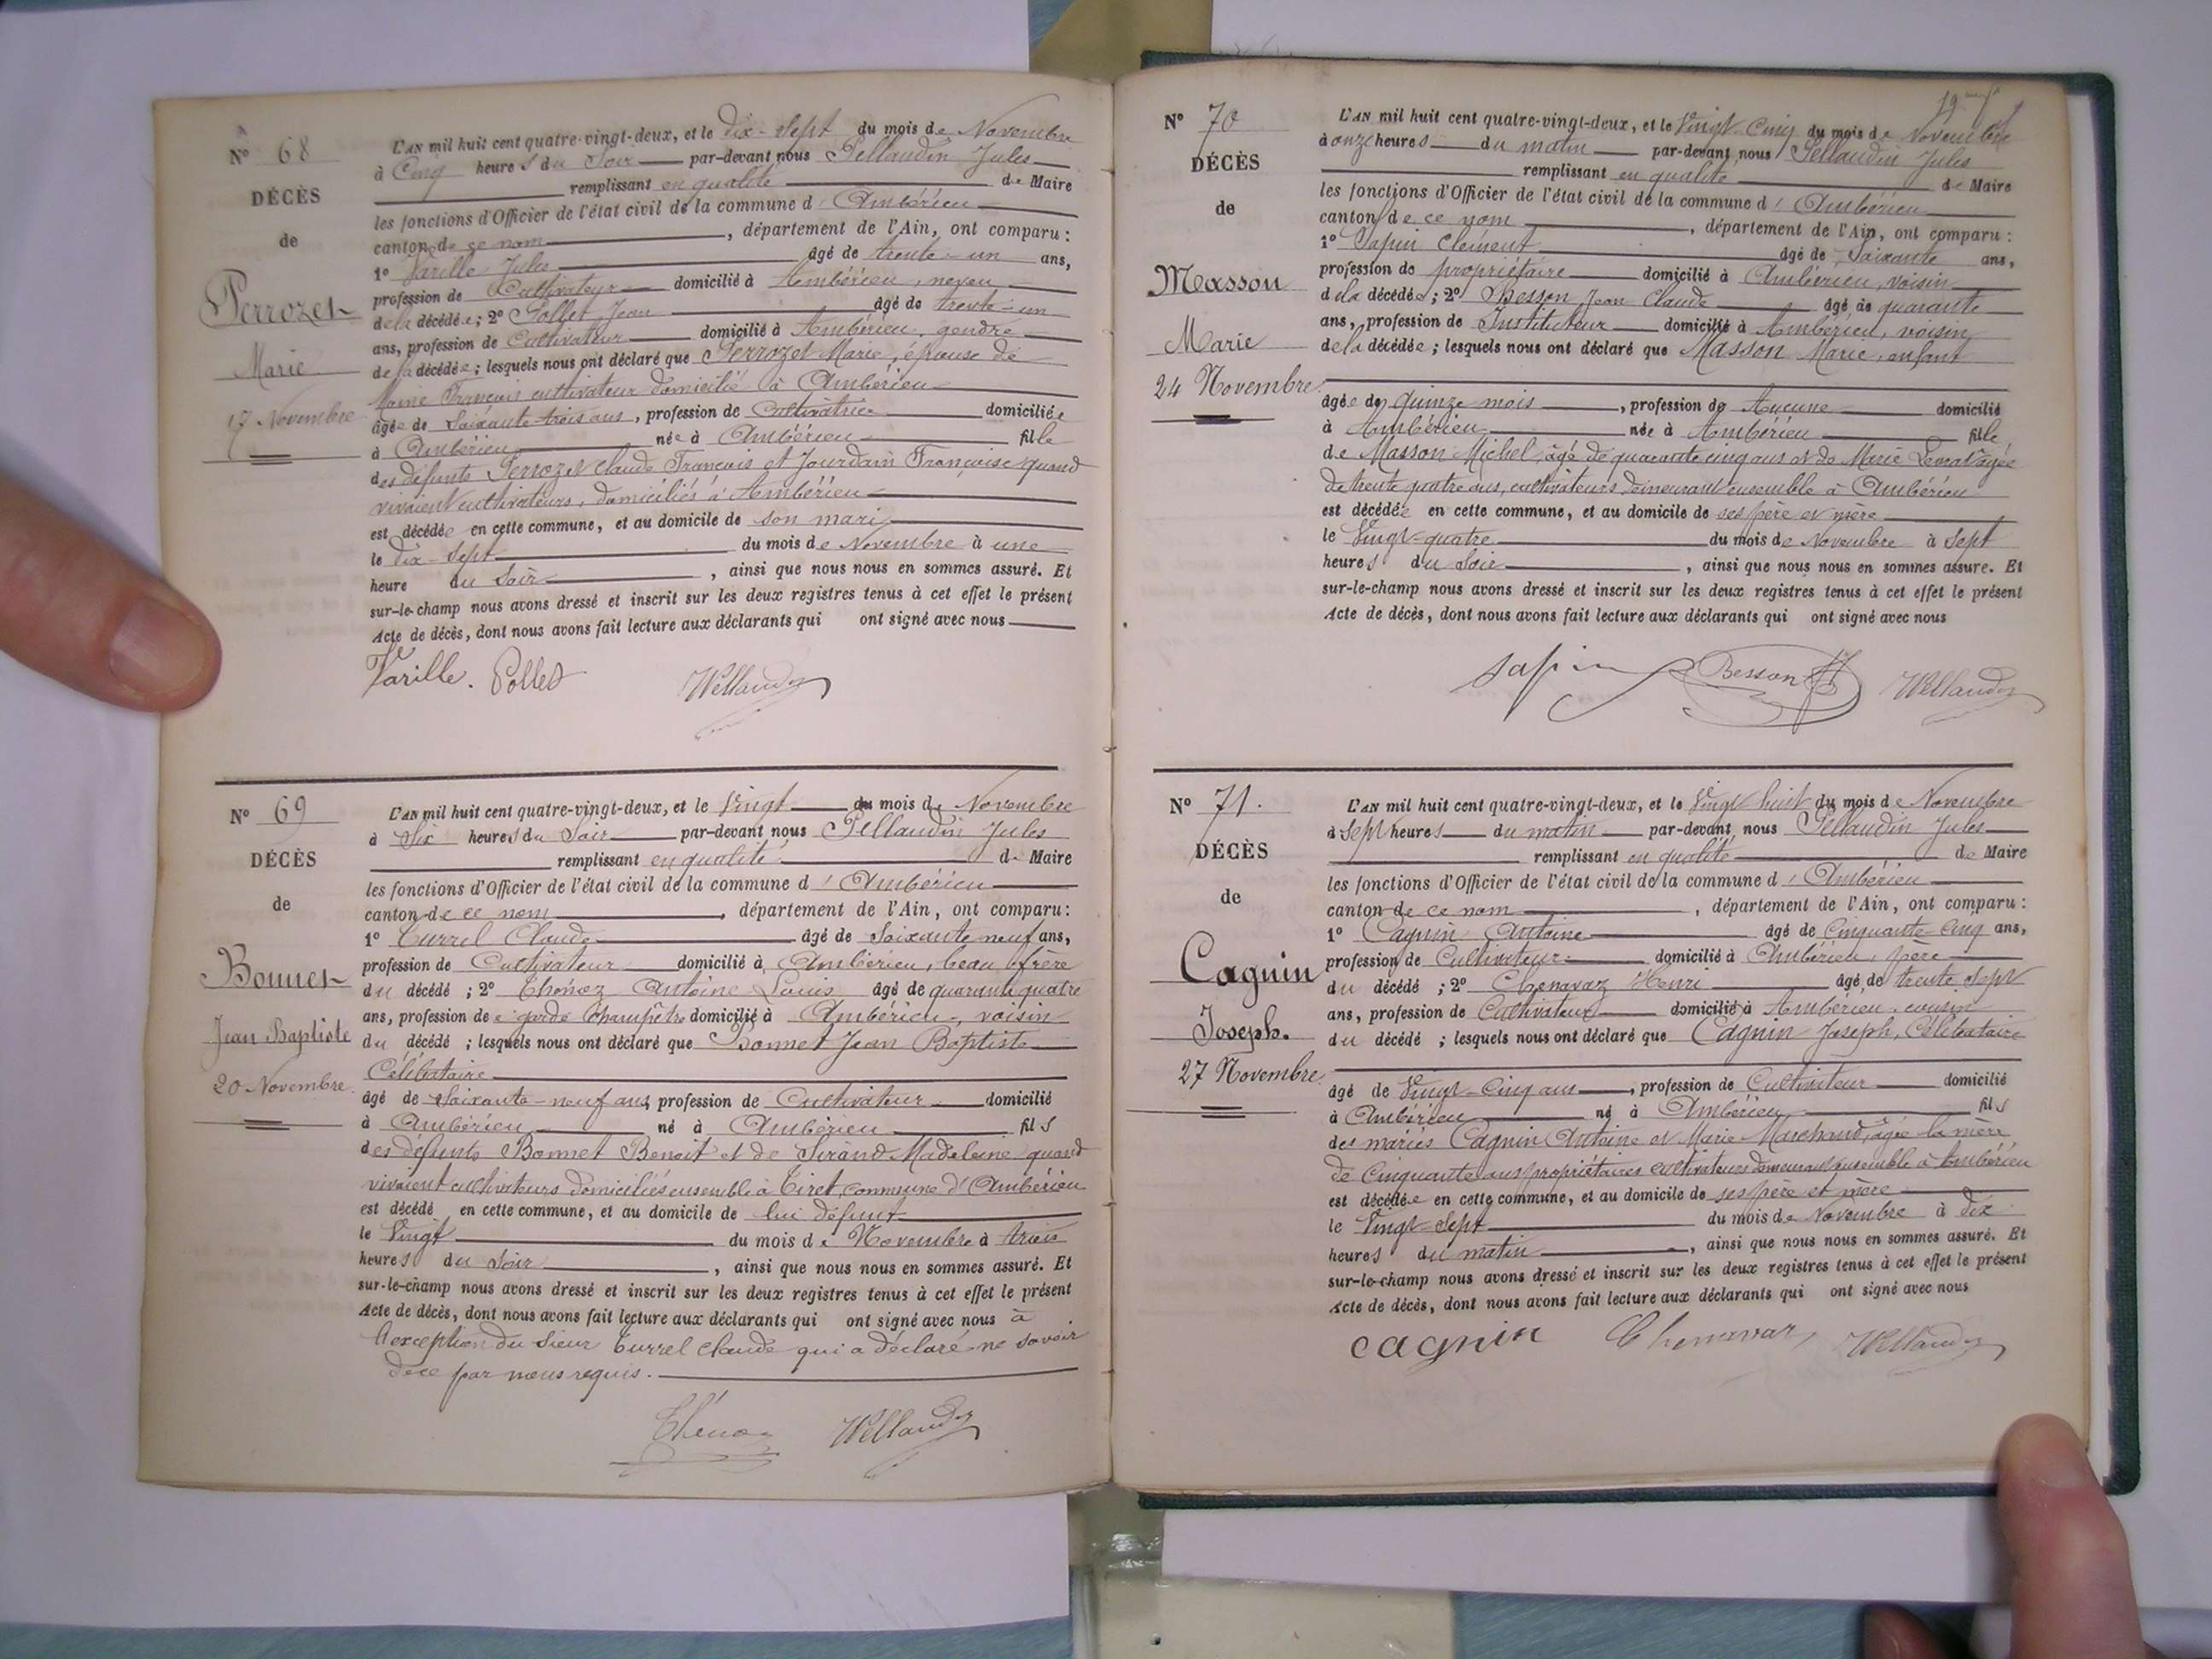 N° 68
DÉCÈS
de
Perrozet
Marie
17 Novembre
L'AN mil huit cent quatre-vingt-deux, et le dix-sept du mois de Novembre
à Cinq heures du Soir par-devant nous Pellaudin Jules
remplissant en qualité de Maire
les fonctions d'Officier de l'état civil de la commune d'Ambérieu
canton de ce nom, département de l'Ain, ont comparu :
1° Varille Jules âgé de trente-un ans,
profession de Cultivateur domicilié à Ambérieu, neveu
de la décédée; 2° Pollet Jean âgé de trente-un
ans, profession de Cultivateur domicilié à Ambérieu, gendre
de la décédée; lesquels nous ont déclaré que Perrozet Marie, épouse de
François cultivateur domicilié à Ambérieu
âgée de Soixante-trois ans, profession de Cultivatrice domiciliée
à Ambérieu née à Ambérieu fille
des défunts Perrozet Claude François et Jourdain Françoise quand
vivaient cultivateurs, domiciliés à Ambérieu
est décédée en cette commune, et au domicile de son mari
le dix-sept du mois de Novembre à une
heure du Soir, ainsi que nous nous en sommes assuré. Et
sur-le-champ nous avons dressé et inscrit sur les deux registres tenus à cet effet le présent
Acte de décès, dont nous avons fait lecture aux déclarants qui ont signé avec nous
Varille. Pollet
N° 69
DÉCÈS
de
Bonnet
Jean Baptiste
20 Novembre
L'AN mil huit cent quatre-vingt-deux, et le Vingt du mois de Novembre
à Six heures du Soir par-devant nous Pellaudin Jules
remplissant en qualité de Maire
les fonctions d'Officier de l'état civil de la commune d'Ambérieu
canton de ce nom, département de l'Ain, ont comparu :
1° Currel Claude âgé de Soixante neuf ans,
profession de Cultivateur domicilié à Ambérieu, beau frère
du décédé ; 2° Antoine Louis âgé de quarante quatre
ans, profession de garde Champêtre domicilié à Ambérieu, voisin
du décédé ; lesquels nous ont déclaré que Bonnet Jean Baptiste
Célibataire
âgé de Soixante-neuf ans, profession de Cultivateur domicilié
à Ambérieu né à Ambérieu fils
des défunts Bonnet Benoit et de Sirand Madeleine quand
vivaient cultivateurs domiciliés ensemble à Tiret, commune d'Ambérieu
est décédé en cette commune, et au domicile de lui défunt
le Vingt du mois de Novembre à trois
heures du Soir, ainsi que nous nous en sommes assuré. Et
sur-le-champ nous avons dressé et inscrit sur les deux registres tenus à cet effet le présent
Acte de décès, dont nous avons fait lecture aux déclarants qui ont signé avec nous à
l'exception du Sieur Currel Claude qui a déclaré ne savoir
de ce par nous requis.
N° 70
DÉCÈS
de
Masson
Marie
24 Novembre
L'AN mil huit cent quatre-vingt-deux, et le Vingt-Cinq du mois de Novembre
à onze heures du matin par-devant nous Pellaudin Jules
remplissant en qualité de Maire
les fonctions d'Officier de l'état civil de la commune d'Ambérieu
canton de ce nom, département de l'Ain, ont comparu :
1° Sapin Clément âgé de Soixante ans,
profession de propriétaire domicilié à Ambérieu, voisin
de la décédée; 2° Besson Jean Claude âgé de quarante
ans, profession de Instituteur domicilié à Ambérieu, voisin
de la décédée; lesquels nous ont déclaré que Masson Marie, enfant
âgée de quinze mois, profession de Aucune domicilié
à Ambérieu née à Ambérieu fille
de Masson Michel, âgé de quarante cinq ans et de Marie âgée
de trente quatre ans, cultivateurs demeurant ensemble à Ambérieu
est décédée en cette commune, et au domicile de ses père et mère
le Vingt-quatre du mois de Novembre à Sept
heures du Soir, ainsi que nous nous en sommes assuré. Et
sur-le-champ nous avons dressé et inscrit sur les deux registres tenus à cet effet le présent
Acte de décès, dont nous avons fait lecture aux déclarants qui ont signé avec nous
sapin Besson
N° 71.
DÉCÈS
de
Cagnin
Joseph.
27 Novembre
L'AN mil huit cent quatre-vingt-deux, et le Vingt huit du mois de Novembre
à Sept heures du matin par-devant nous Pellaudin Jules
remplissant en qualité de Maire
les fonctions d'Officier de l'état civil de la commune d'Ambérieu
canton de ce nom, département de l'Ain, ont comparu :
1° Cagnin Antoine âgé de Cinquante-Cinq ans,
profession de Cultivateur domicilié à Ambérieu, père
du décédé ; 2° Chenavaz Henri âgé de trente sept
ans, profession de Cultivateur domicilié à Ambérieu, cousin
du décédé ; lesquels nous ont déclaré que Cagnin Joseph, Célibataire
âgé de Vingt-Cinq ans, profession de Cultivateur domicilié
à Ambérieu né à Ambérieu fils
des mariés Cagnin Antoine et Marie Marchand, âgée la mère
de Cinquante ans propriétaires cultivateurs demeurant ensemble à Ambérieu
est décédée en cette commune, et au domicile de ses père et mère
le Vingt-Sept du mois de Novembre à dix
heures du matin, ainsi que nous nous en sommes assuré. Et
sur-le-champ nous avons dressé et inscrit sur les deux registres tenus à cet effet le présent
Acte de décès, dont nous avons fait lecture aux déclarants qui ont signé avec nous
cagnin Chenavaz